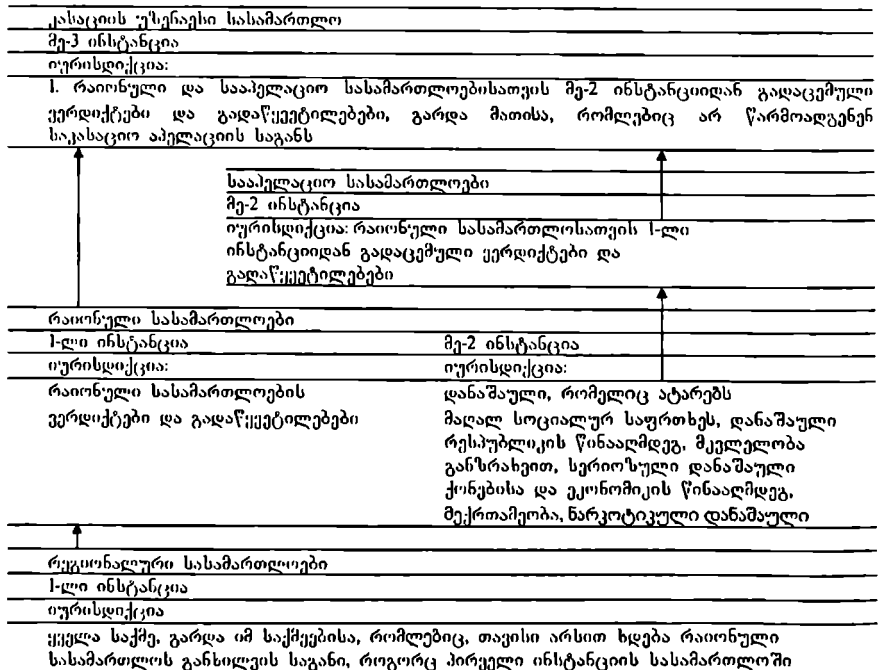 კასაციის უზენაესი სასამართლო
მე-3 ინსტანცია
იურისდიქცია:
1. რაიონული და სააპელაციო სასამართლოებისათვის მე-2 ინსტანციიდან გადაცემული
ვერდიქტები და გადაწყვეტილებები, გარდა მათისა, რომლებიც არ წარმოადგენენ
საკასაციო აპელაციის საგანს
სააპელაციო სასამართლოები
მე-2 ინსტანცია
იურისდიქცია: რაიონული სასამართლოსათვის 1-ლი
ინსტანციიდან გადაცემული ვერდიქტები და
გადაწყვეტილებები
რაიონული სასამართლოები
1-ლი ინსტანცია მე-2 ინსტანცია
იურისდიქცია: იურისდიქცია:
რაიონული სასამართლოების დანაშაული, რომელიც ატარებს
ვერდიქტები და გადაწყვეტილებები მაღალ სოციალურ საფრთხეს, დანაშაული
რესპუბლიკის წინააღმდეგ, მკვლელობა
განზრახვით, სერიოზული დანაშაული
ქონებისა და ეკონომიკის წინააღმდეგ,
მექრთამეობა, ნარკოტიკული დანაშაული
რეგიონალური სასამართლოები
1-ლი ინსტანცია
იურისდიქცია
ყველა საქმე, გარდა იმ საქმეებისა, რომლებიც, თავისი არსით ხდება რაიონული
სასამართლოს განხილვის საგანი, როგორც პირველი ინსტანციის სასამართლოში